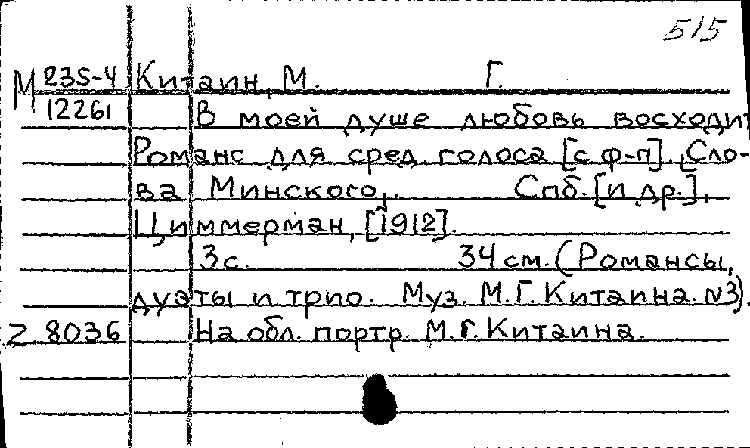 515
М 235-4 Китаин, М. Г.
12261 В моей душе любовь восходит
Романс для сред. голоса [с ф-п]. Сло-
ва Минского. Спб. [и др.],
Циммерман, [1912].
3 с. 34 см. (Романсы,
дуэты и трио. Муз. М.Г. Китаина. №3).
Z 8036 На обл. портр. М.Г. Китаина.